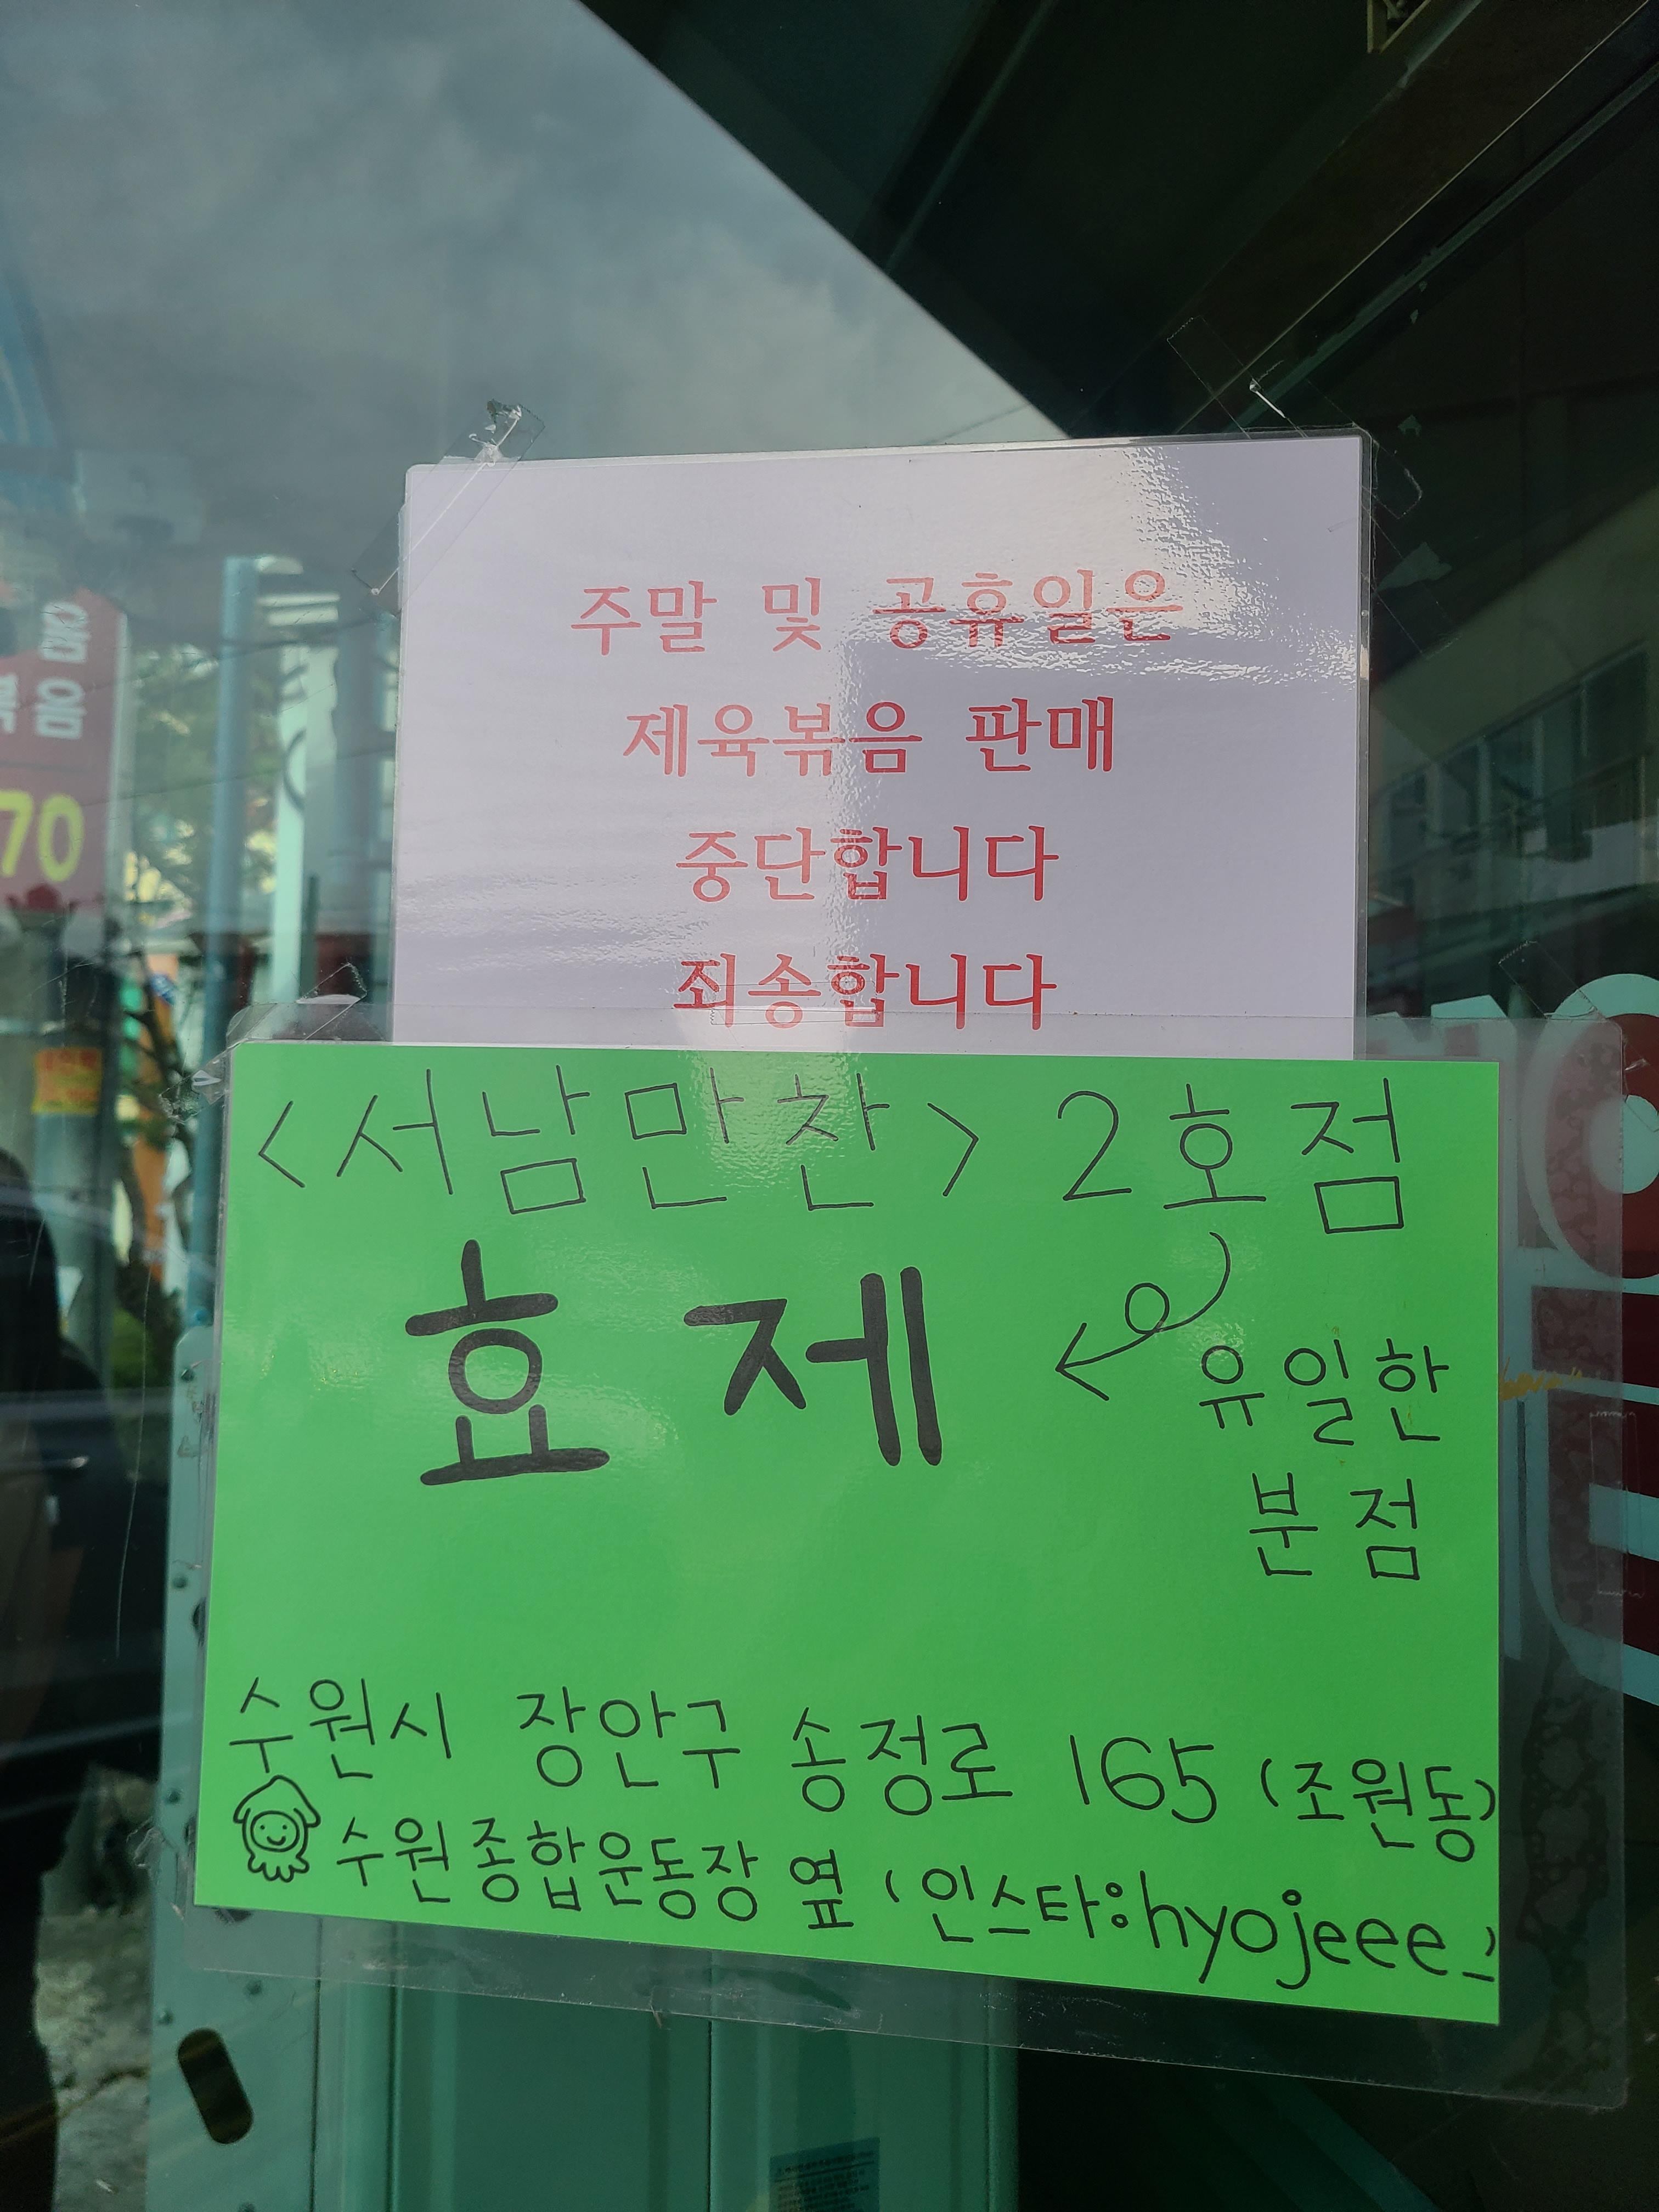 주말 및 공휴일은
제육볶음 판매
중단합니다
죄송합니다
<서남만찬> 2호점
효제
유일한
분점
수원시 장안구 송정로 165 (조원동)
수원종합운동장 옆 (인스타:hyojeee_)
70